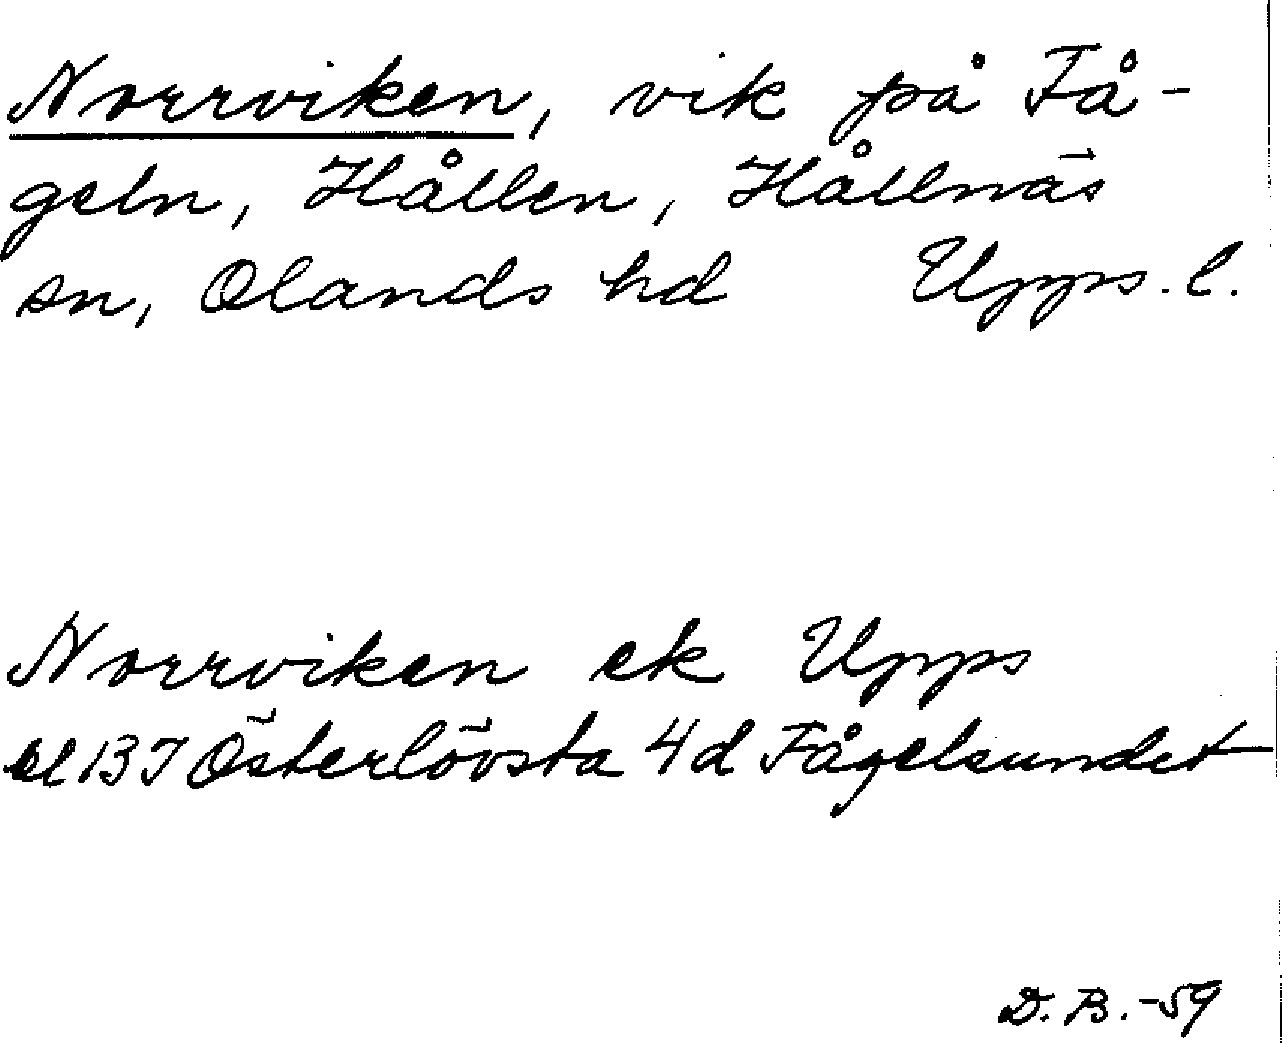 Norrviken, vik på Få-
geln, Hållen, Hållnäs
sn, Olands hd Upps. l.
Norrviken ek Upps
bl 13 I Österlövsta 4d Fågelsundet
D. B. -59